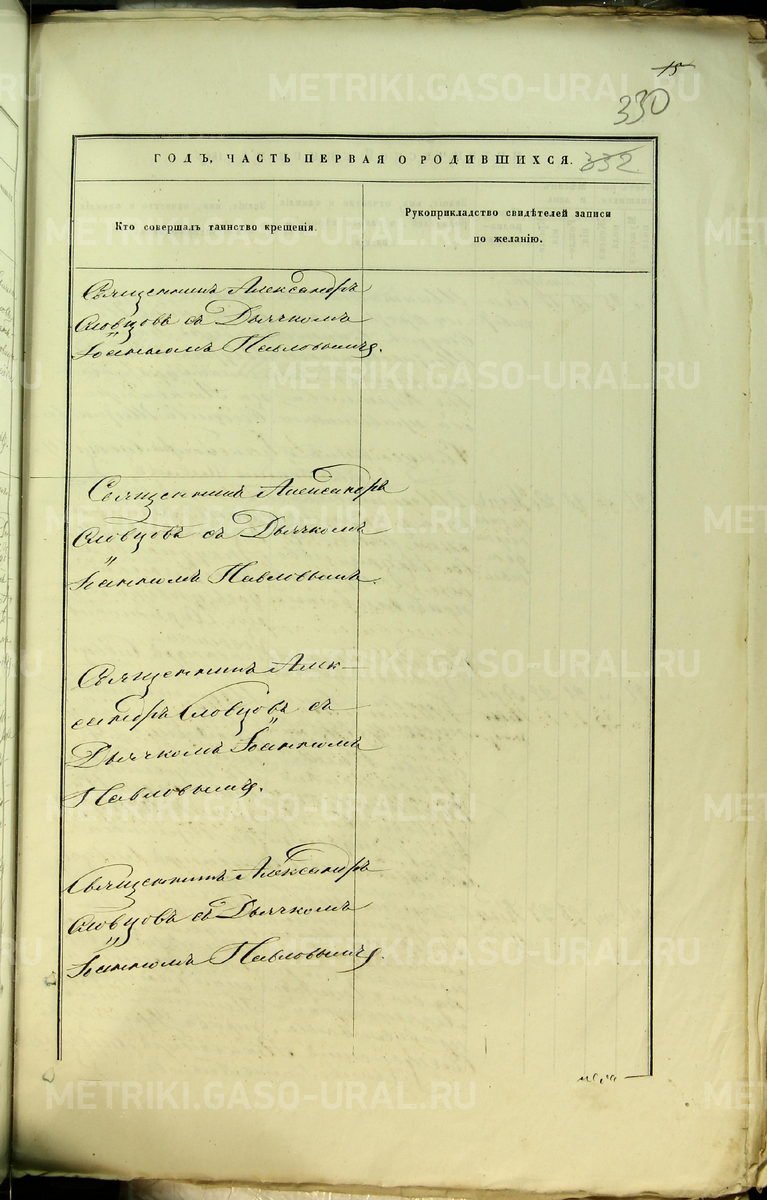 15
330
ГОДЪ, ЧАСТЬ ПЕРВАЯ О РОДИВШИХСЯ. 332
Кто совершалъ таинство крещенія.
Рукоприкладство свидѣтелей записи
по желанію.
Священникъ Александръ
Словцовъ съ Дьячкомъ
Іоанномъ Павловымъ.
Священникъ Александръ
Словцовъ съ Дьячкомъ
Іоанномъ Павловымъ.
Священникъ Алек-
сандръ Словцовъ съ
Дьячкомъ Іоанномъ
Павловымъ.
Священникъ Александръ
Словцовъ съ Дьячкомъ
Іоанномъ Павловымъ.
METRIKI.GASO-URAL.RU